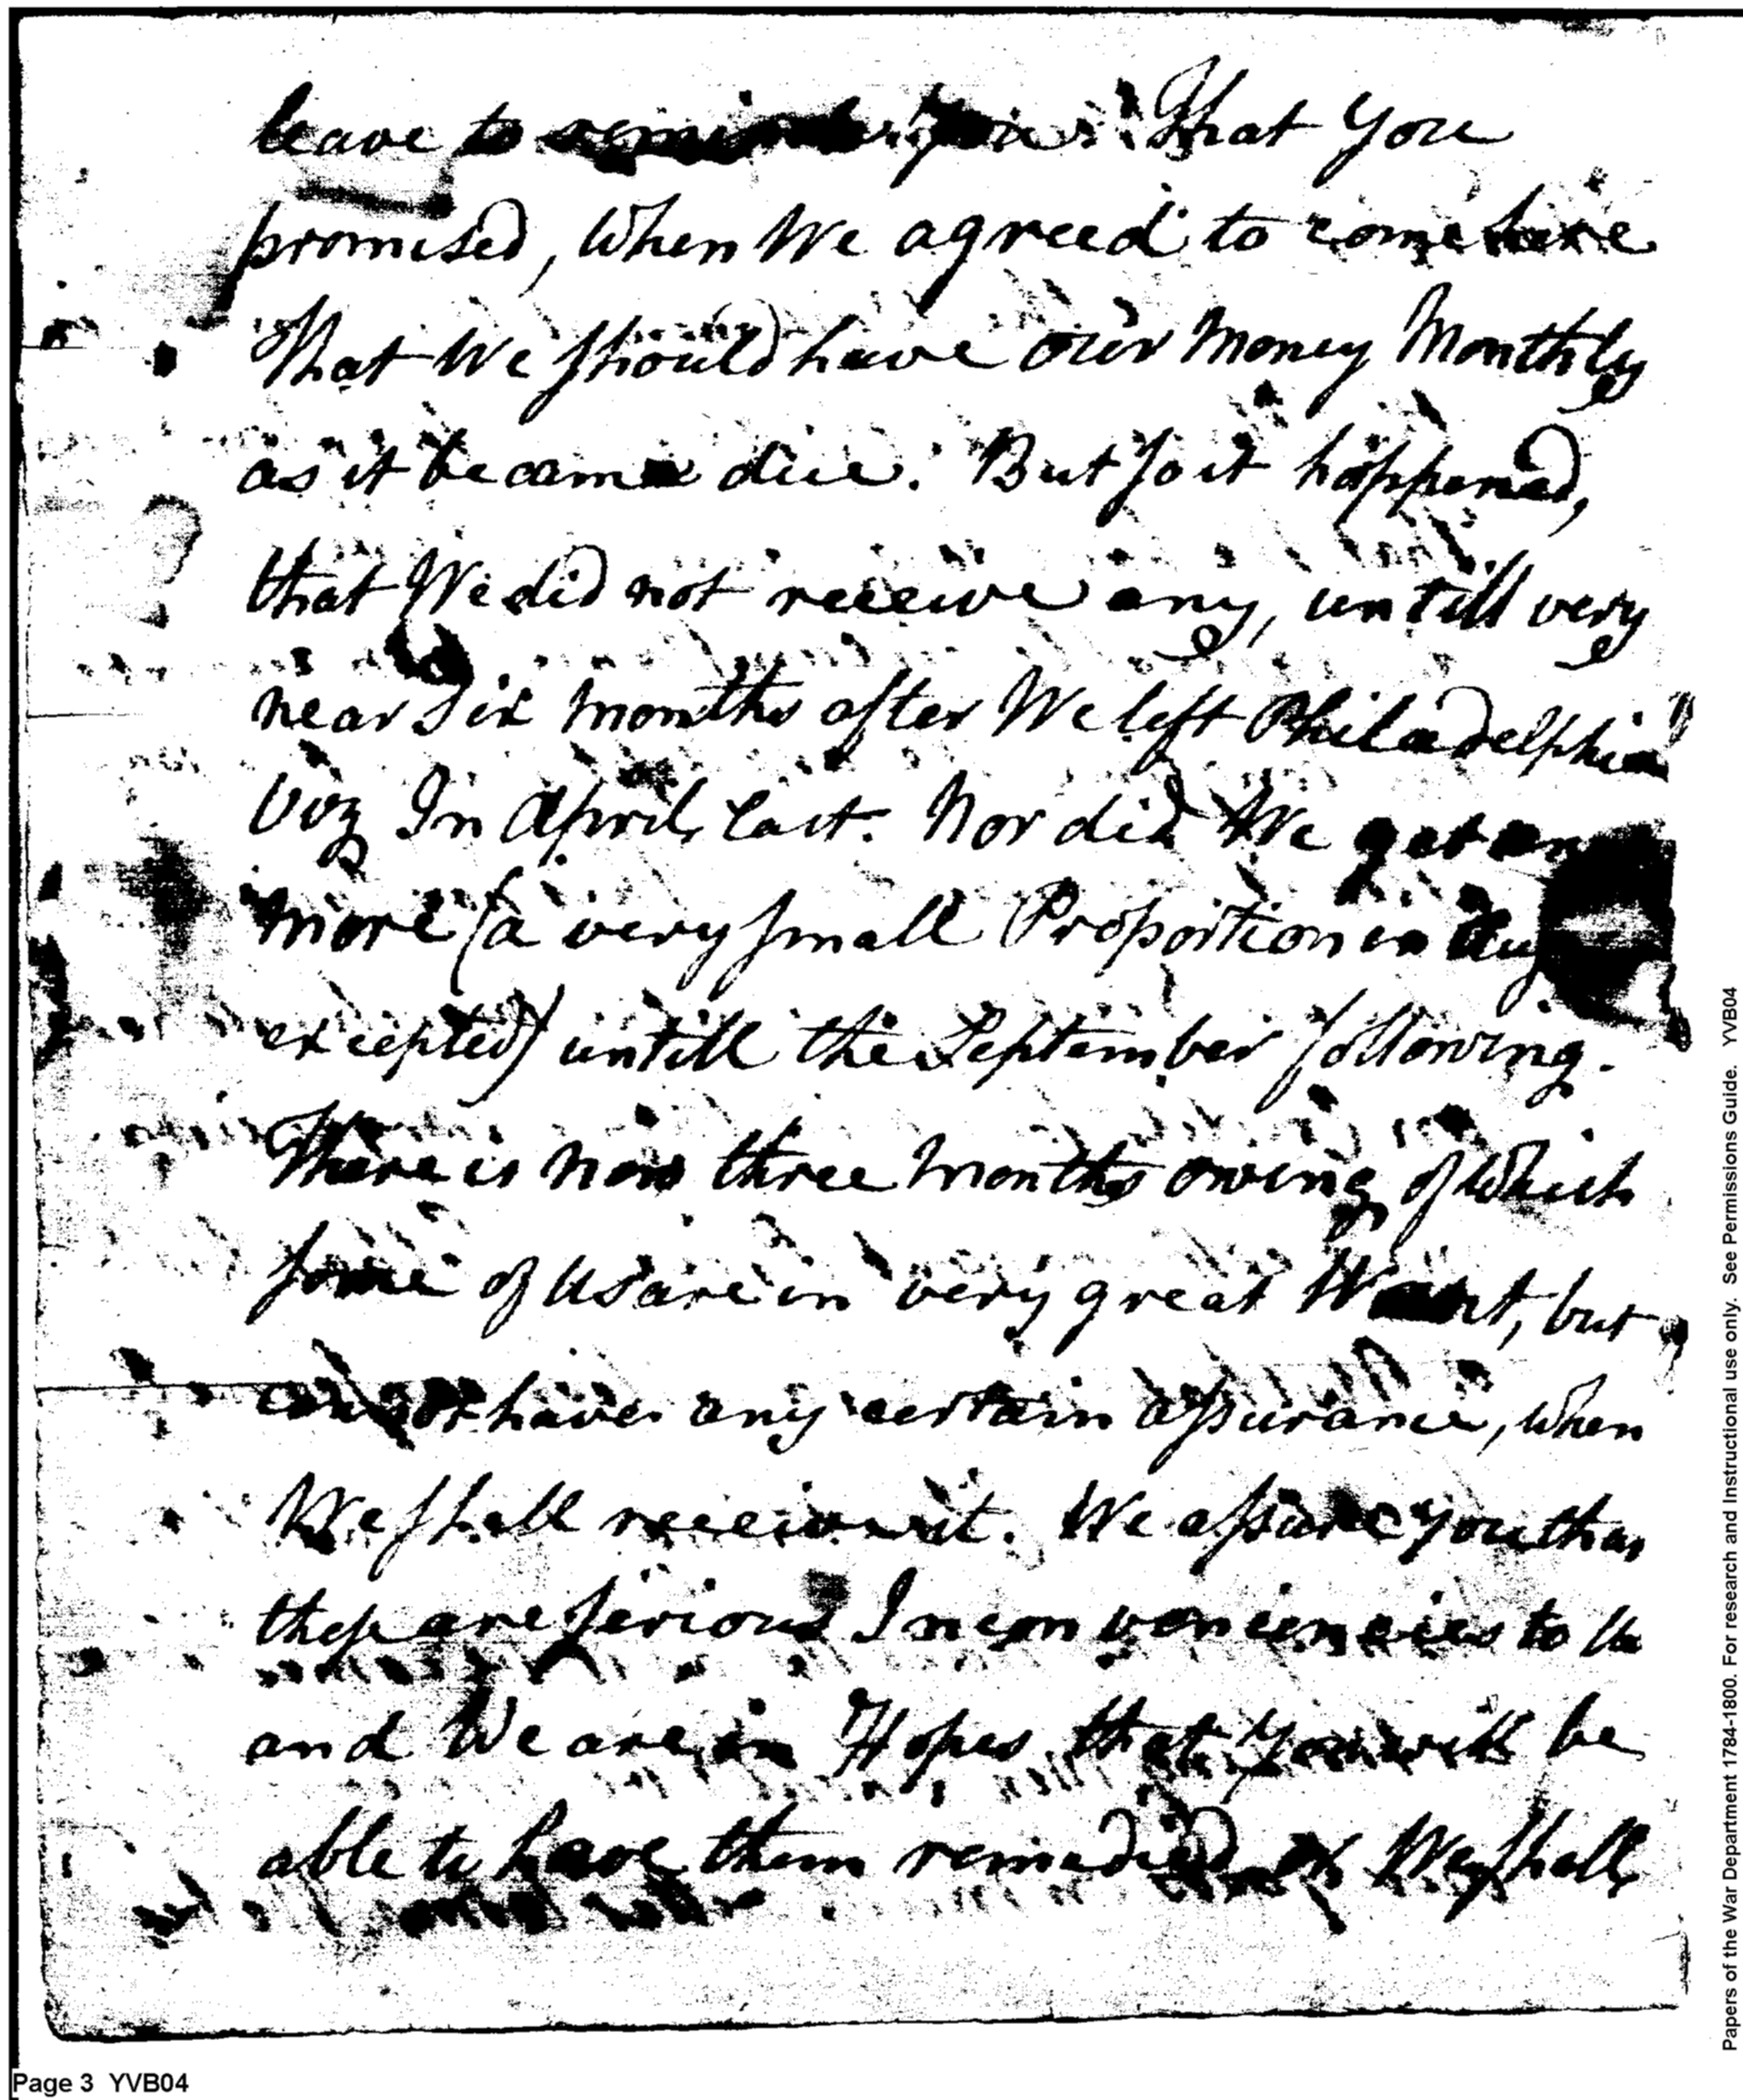 leave to remind you. That You
promised, When We agreed to come here
That We should have our Money Monthly
as it became due. But so it happened,
that We did not receive any, untill very
near Six Months after We left Philadelphia
Viz In April last. Nor did We get an
more (a very small Proportion in Aug
excepted) untill the September following.
There is now three Months owing of Which
some of us are in very great Want, but
cannot have any certain assurance, When
We shall receive it. We assure you tha
these are serious Inconveniencies to Us
and We are in Hopes that you will be
able to have them remedied We shall
Papers of the War Department 1784-1800. For research and Instructional use only. See Permissions Guide. YVB04
Page 3 YVB04